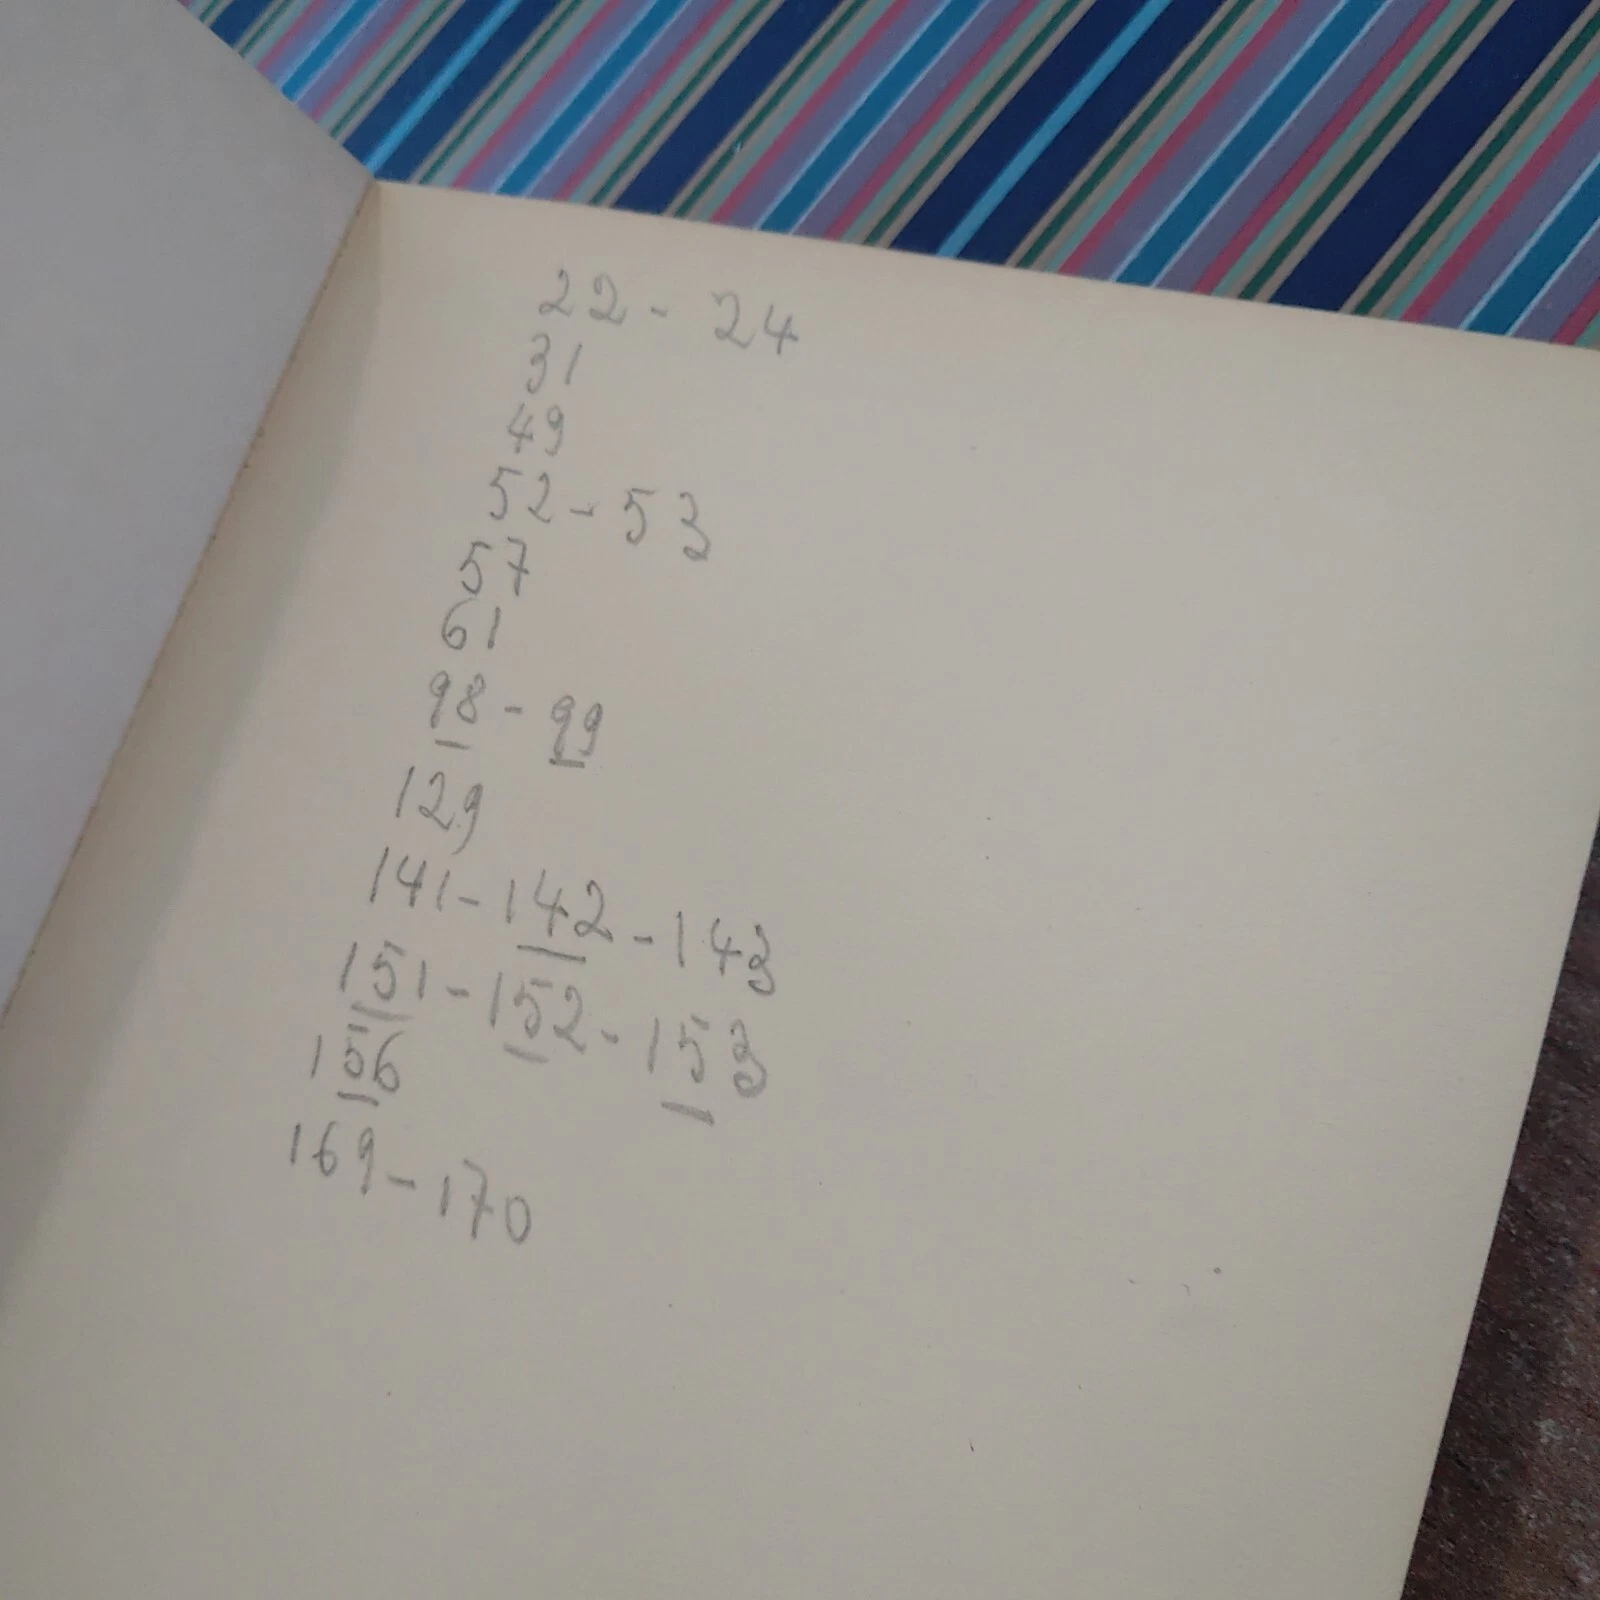 22 - 24
31
49
52 - 53
57
61
98 - 99
129
141 - 142 - 143
151 - 152 - 153
156
169 - 170